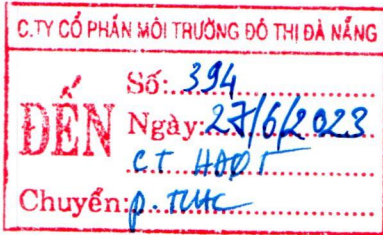 C.TY CỔ PHẦN MÔI TRƯỜNG ĐÔ THỊ ĐÀ NẴNG
ĐẾN
Số: 394
Ngày: 27/6/2023
CT HĐQT
Chuyển: P. TCHC